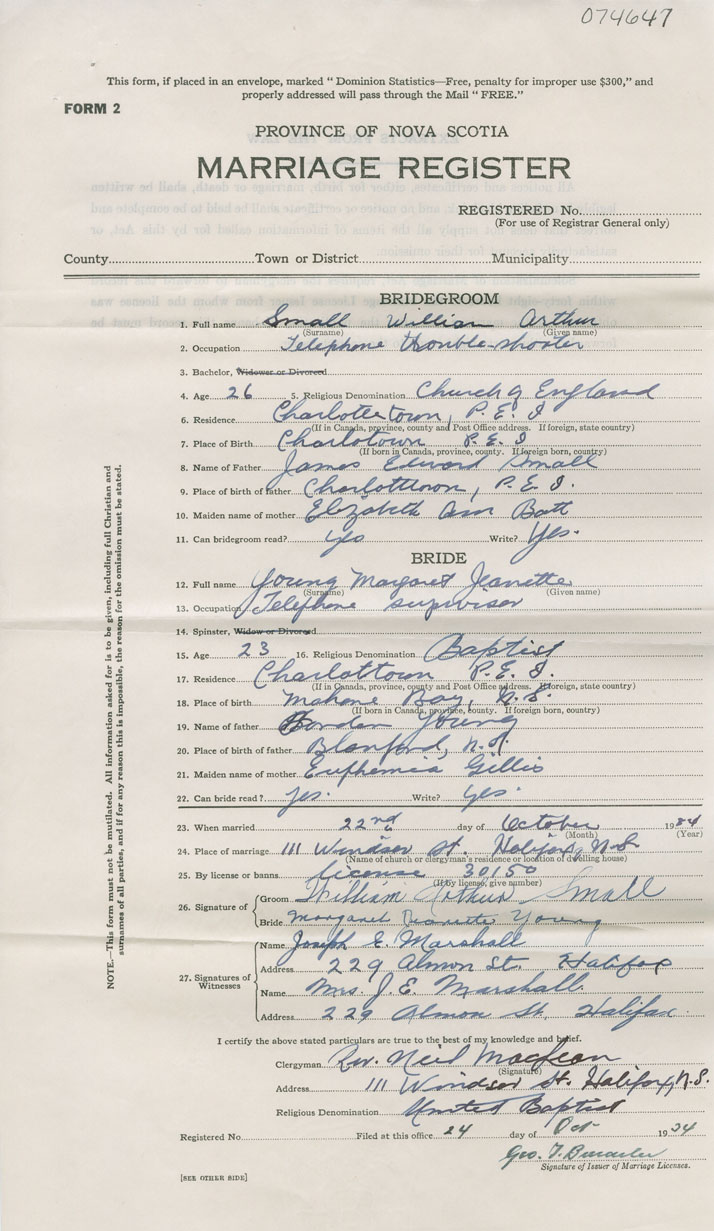 074647
This form, if placed in an envelope, marked " Dominion Statistics—Free, penalty for improper use $300," and
properly addressed will pass through the Mail " FREE."
FORM 2
PROVINCE OF NOVA SCOTIA
MARRIAGE REGISTER
REGISTERED No.
(For use of Registrar General only)
County Town or District Municipality
BRIDEGROOM
1. Full name Small William Arthur
(Surname) (Given name)
2. Occupation Telephone trouble-shooter
3. Bachelor, Widower or Divorced
4. Age 26 5. Religious Denomination Church of England
6. Residence Charlottetown, P.E.I
(If in Canada, province, county and Post Office address. If foreign, state country)
7. Place of Birth Charlotown P.E.I
(If born in Canada, province, county. If foreign born, country)
8. Name of Father James Edward Small
9. Place of birth of father Charlotttown, P.E.I.
10. Maiden name of mother Elizabeth Ann Batt
11. Can bridegroom read? yes Write? Yes.
BRIDE
12. Full name Young Margaret Jeanette
(Surname) (Given name)
13. Occupation Telephone supervisor
14. Spinster, Widow or Divorced
15. Age 23 16. Religious Denomination Baptist
17. Residence Charlottown P.E.I.
(If in Canada, province, county and Post Office address. If foreign, state country)
18. Place of birth Mahone Bay, N.S.
(If born in Canada, province, county. If foreign born, country)
19. Name of father Young
20. Place of birth of father Blanford, N.S.
21. Maiden name of mother Euphemia Gillis
22. Can bride read? yes. Write? yes.
23. When married 22nd day of October 1934
(Month) (Year)
24. Place of marriage 111 Windsor St. Halifax, N.S.
(Name of church or clergyman's residence or location of dwelling house)
25. By license or banns license 30150
(If by license, give number)
26. Signature of Groom William Arthur Small
Bride Margaret Jeanette Young
27. Signatures of Witnesses Name Joseph E. Marshall
Address 229 Almon St. Halifax
Name Mrs. J. E. Marshall.
Address 229 Almon St. Halifax.
I certify the above stated particulars are true to the best of my knowledge and belief.
Clergyman Rev. Neil MacLean
(Signature)
Address 111 Windsor St. Halifax, N.S.
Religious Denomination United Baptist
Registered No Filed at this office 24 day of Oct 1934
Geo. T.
Signature of Issuer of Marriage Licenses.
[SEE OTHER SIDE]
NOTE.—This form must not be mutilated. All information asked for is to be given, including full Christian and
surnames of all parties, and if for any reason this is impossible, the reason for the omission must be stated.